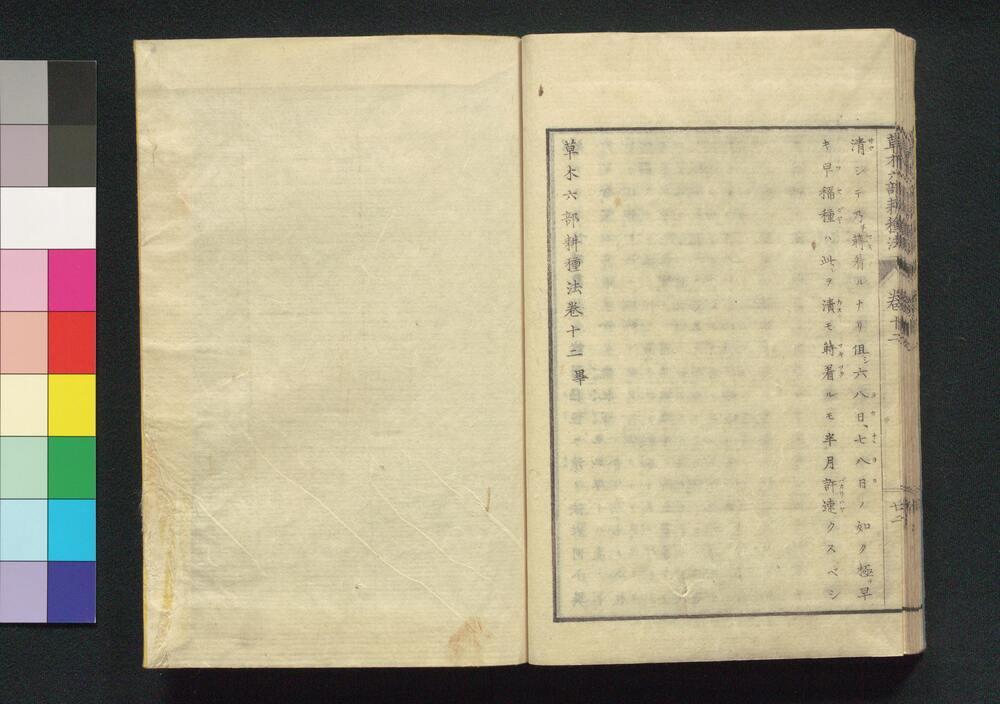 清シテ乃蒔着ルナリ但シ六八日、七八日ノ如ク極早
キ早稲種ハ此ヲ漬モ蒔着ルモ半月許速クスベシ
草木六部耕種法巻十二畢
草木六部耕種法 巻十二